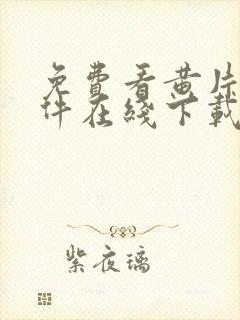 免費看黄片
件在綫下載
紫夜璃